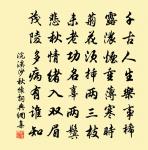 千古人生樂事稀
露濃煙重薄寒時
菊花須插兩三枝
未老功名辜兩鬢
悲秋情緒入雙眉
茂陵多病有誰知
浣溪沙秋懷